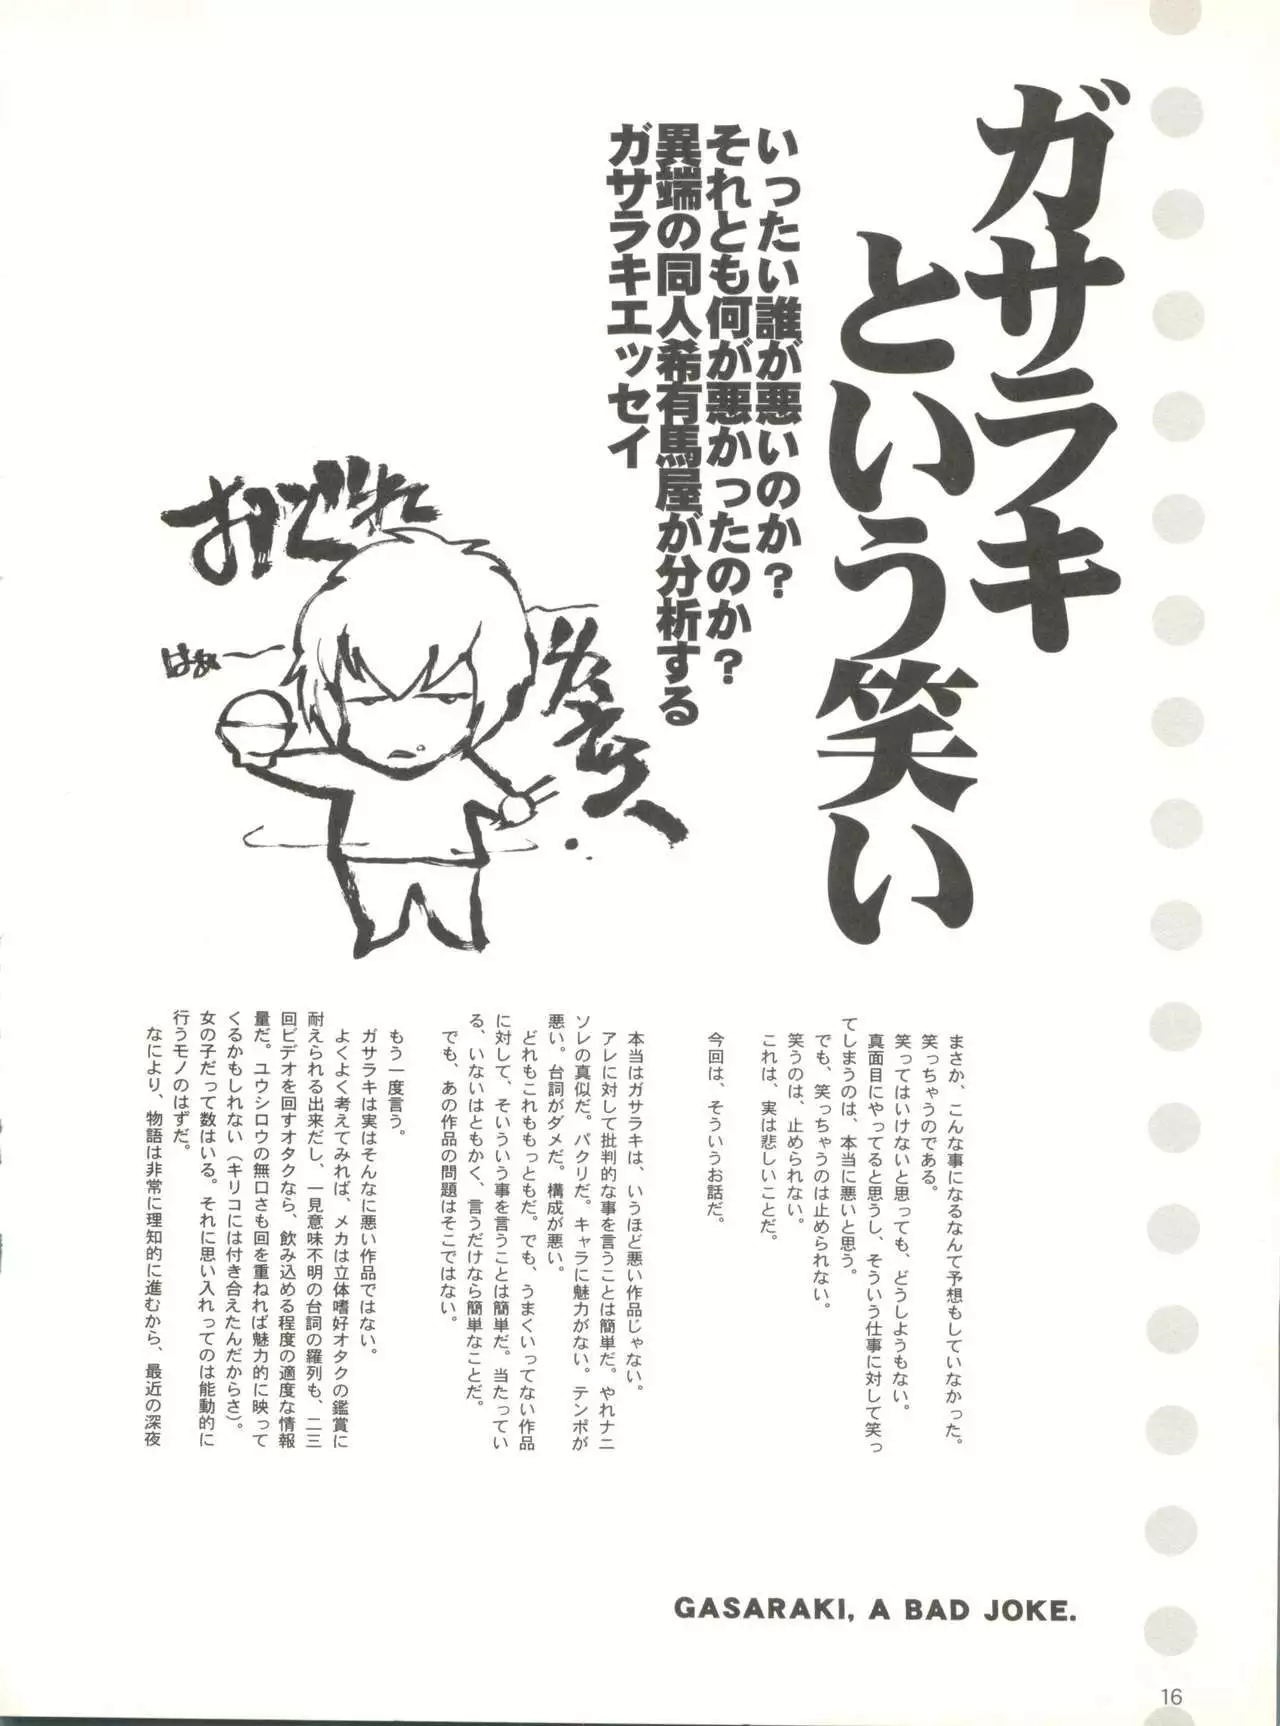 ガサラキ
という笑い
いったい誰が悪いのか？
それとも何が悪かったのか？
異端の同人希有馬屋が分析する
ガサラキエッセイ
おどれ
はぁ〜
まさか、こんな事になるなんて予想もしていなかった。
笑っちゃうのである。
笑ってはいけないと思っても、どうしようもない。
真面目にやってると思うし、そういう仕事に対して笑っ
てしまうのは、本当に悪いと思う。
でも、笑っちゃうのは止められない。
笑うのは、止められない。
これは、実は悲しいことだ。
今回は、そういうお話だ。
本当はガサラキは、いうほど悪い作品じゃない。
アレに対して批判的な事を言うことは簡単だ。やれナニ
ソレの真似だ。パクリだ。キャラに魅力がない。テンポが
悪い。台詞がダメだ。構成が悪い。
どれもこれももっともだ。でも、うまくいってない作品
に対して、そいういう事を言うことは簡単だ。当たってい
る、いないはともかく、言うだけなら簡単なことだ。
でも、あの作品の問題はそこではない。
もう一度言う。
ガサラキは実はそんなに悪い作品ではない。
よくよく考えてみれば、メカは立体嗜好オタクの鑑賞に
耐えられる出来だし、一見意味不明の台詞の羅列も、二三
回ビデオを回すオタクなら、飲み込める程度の適度な情報
量だ。ユウシロウの無口さも回を重ねれば魅力的に映って
くるかもしれない（キリコには付き合えたんだからさ）。
女の子だって数はいる。それに思い入れってのは能動的に
行うモノのはずだ。
なにより、物語は非常に理知的に進むから、最近の深夜
GASARAKI, A BAD JOKE.
16